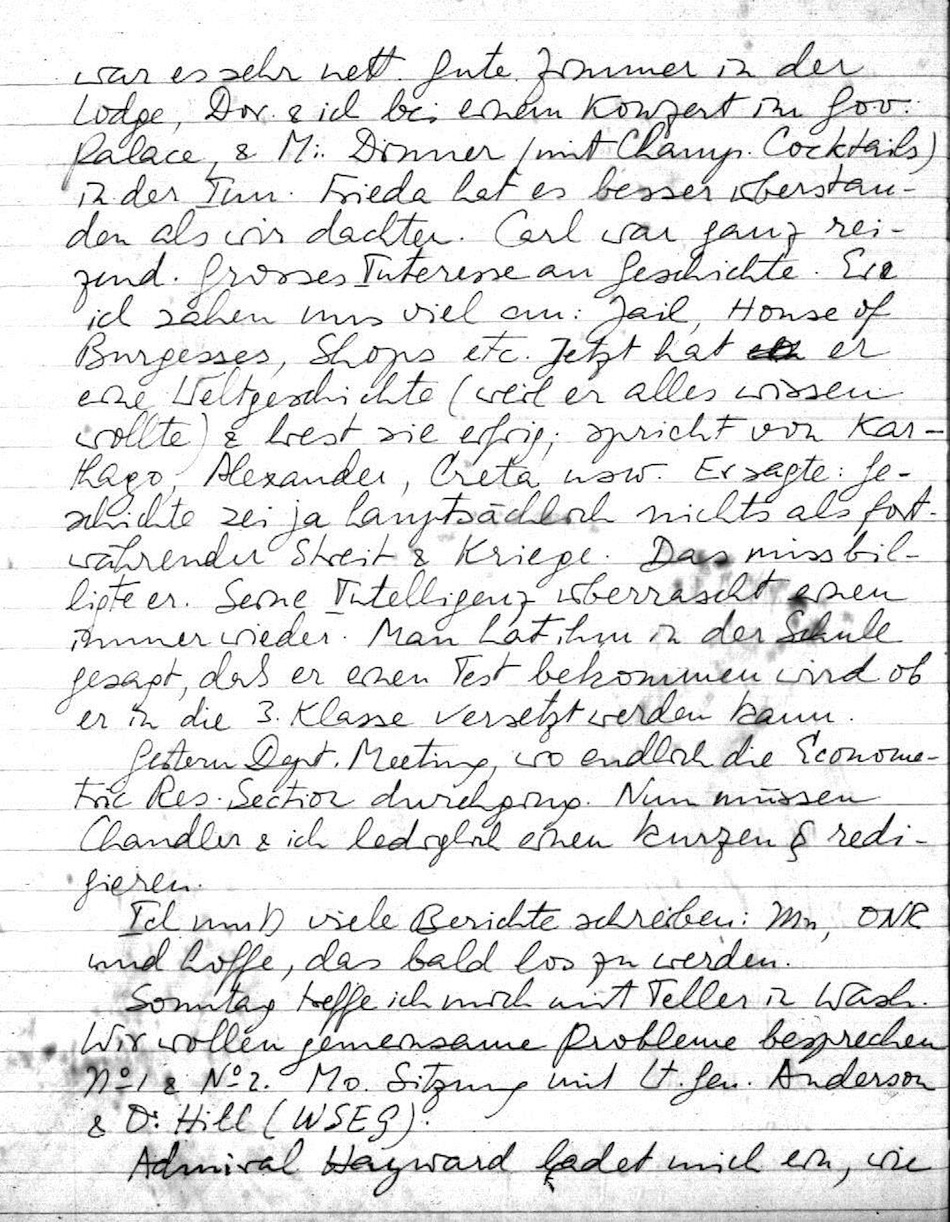 war es sehr nett. Gute Zimmer in der
Lodge, Dor. & ich bei einem Konzert im Gov.
Palace, & Mi. Dinner (mit Champ. Cocktails)
in der Inn. Frieda hat es besser überstan-
den als wir dachten. Carl war ganz rei-
zend. Grosses Interesse an Geschichte. Er &
ich sahen uns viel an: Jail, House of
Burgesses, Shops etc. Jetzt hat er
eine Weltgeschichte (weil er alles wissen
wollte) & liest sie eifrig; spricht von Kar-
thago, Alexander, Creta usw. Er sagte: Ge-
schichte sei ja hauptsächlich nichts als fort-
währender Streit & Kriege. Das missbil-
ligte er. Seine Intelligenz überrascht einen
immer wieder. Man hat ihm in der Schule
gesagt, daß er einen Test bekommen wird ob
er in die 3. Klasse versetzt werden kann.
Gestern Dept. Meeting, wo endlich die Econome-
tric Res. Section durchging. Nun müssen
Chandler & ich lediglich einen kurzen § redi-
gieren.
Ich muß viele Berichte schreiben: Mn, ONR
und hoffe, das bald los zu werden.
Sonntag treffe ich mich mit Teller in Wash.
Wir wollen gemeinsame Probleme besprechen
Nº1 & Nº2. Mo. Sitzung mit Lt. Gen. Anderson
& Dr. Hill (WSEG).
Admiral Hayward ladet mich ein, wie